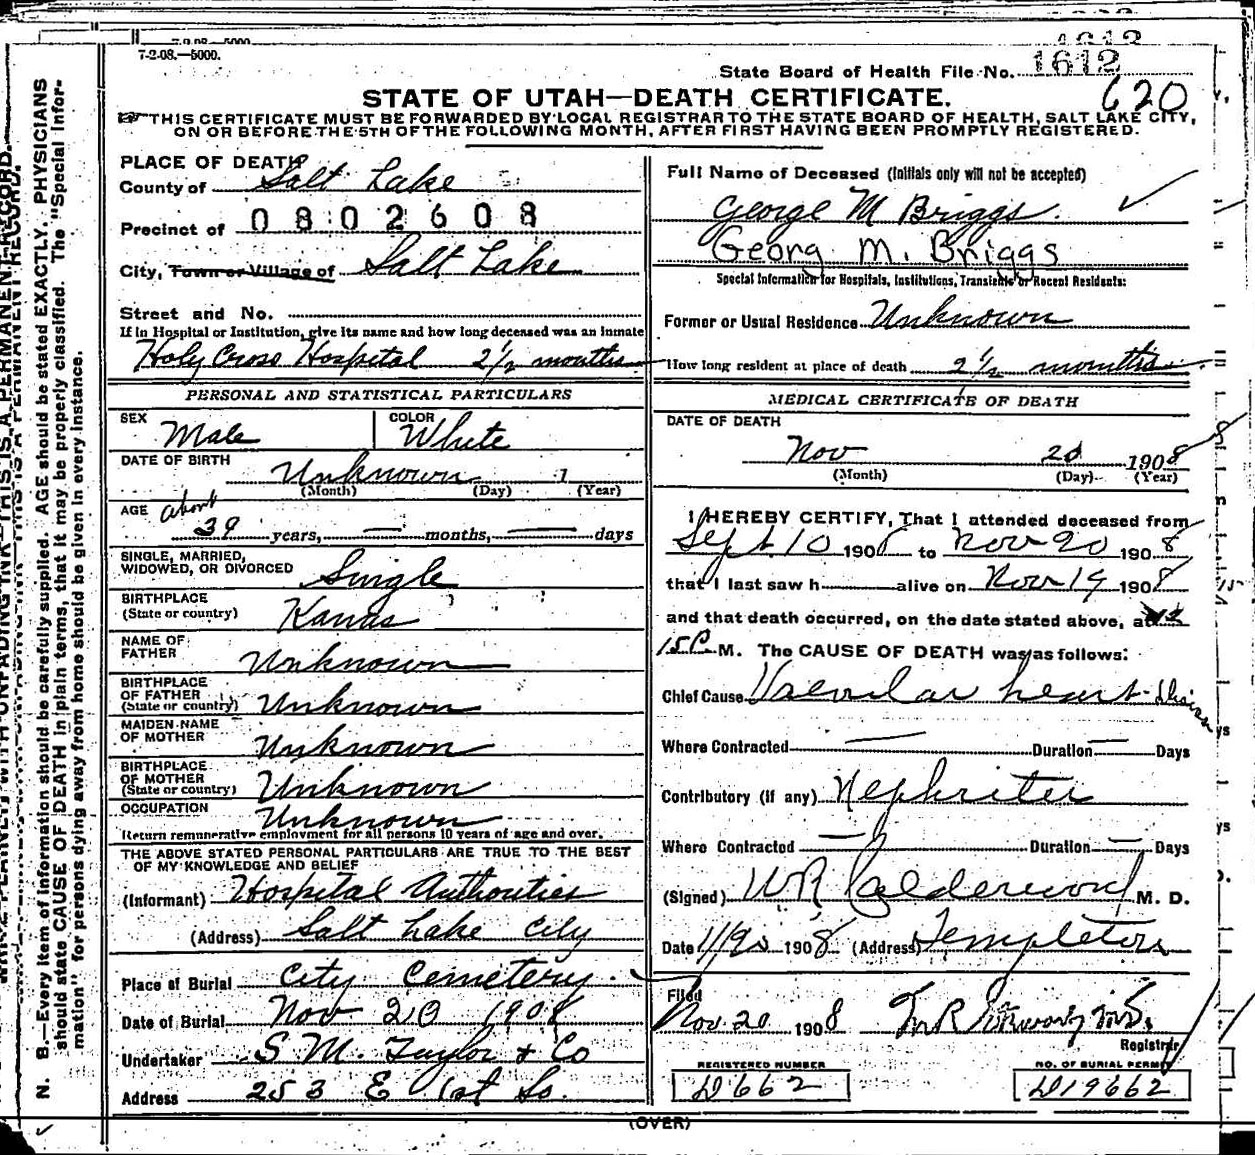 7-2-08.—5000.
State Board of Health File No. 1612
620
STATE OF UTAH—DEATH CERTIFICATE.
THIS CERTIFICATE MUST BE FORWARDED BY LOCAL REGISTRAR TO THE STATE BOARD OF HEALTH, SALT LAKE CITY,
ON OR BEFORE THE 5TH OF THE FOLLOWING MONTH, AFTER FIRST HAVING BEEN PROMPTLY REGISTERED.
PLACE OF DEATH
County of Salt Lake
Precinct of 0802608
City, Town or Village of Salt Lake
Street and No.
If in Hospital or Institution, give its name and how long deceased was an inmate
Holy Cross Hospital 2 1/2 months
PERSONAL AND STATISTICAL PARTICULARS
SEX Male COLOR White
DATE OF BIRTH Unknown 1
(Month) (Day) (Year)
AGE about
39 years, — months, — days
SINGLE, MARRIED,
WIDOWED, OR DIVORCED Single
BIRTHPLACE
(State or country) Kansas
NAME OF
FATHER Unknown
BIRTHPLACE
OF FATHER
(State or country) Unknown
MAIDEN NAME
OF MOTHER Unknown
BIRTHPLACE
OF MOTHER
(State or country) Unknown
OCCUPATION Unknown
Return remunerative employment for all persons 10 years of age and over.
THE ABOVE STATED PERSONAL PARTICULARS ARE TRUE TO THE BEST
OF MY KNOWLEDGE AND BELIEF
(Informant) Hospital Authorities
(Address) Salt Lake City
Place of Burial City Cemetery
Date of Burial Nov 20 1908
Undertaker S. M. Taylor & Co
Address 253 E 1st So.
Full Name of Deceased (Initials only will not be accepted)
George M Briggs.
Georg M. Briggs
Special Information for Hospitals, Institutions, Transients or Recent Residents:
Former or Usual Residence Unknown
How long resident at place of death 2 1/2 months
MEDICAL CERTIFICATE OF DEATH
DATE OF DEATH
Nov 20 1908
(Month) (Day) (Year)
I HEREBY CERTIFY, That I attended deceased from
Sept 10 1908 to Nov 20 1908
that I last saw h alive on Nov 19 1908
and that death occurred, on the date stated above, at
15 P. M. The CAUSE OF DEATH was as follows:
Chief Cause Valvular heart disease
Where Contracted — Duration — Days
Contributory (if any) Nephritis
Where Contracted — Duration — Days
(Signed) W R Calderwood M. D.
Date 11/20 1908 (Address) Templeton
Filed
Nov. 20 1908
Registrar
REGISTERED NUMBER
D662
NO. OF BURIAL PERMIT
D19662
(OVER)
N. B.—Every item of information should be carefully supplied. AGE should be stated EXACTLY. PHYSICIANS
should state CAUSE OF DEATH in plain terms, that it may be properly classified. The "Special Infor-
mation" for persons dying away from home should be given in every instance.